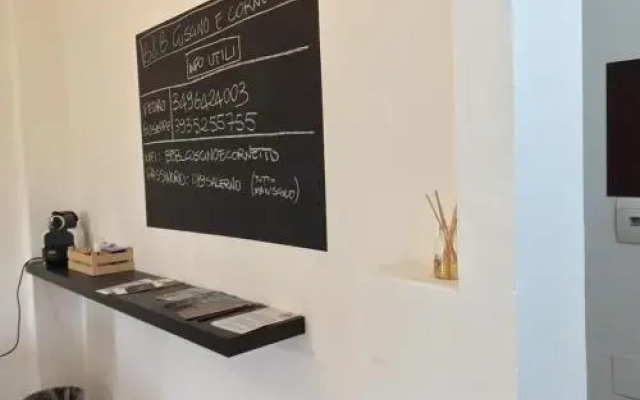 B&B CUSCINO E CORNE
INFO UTILI
PEDRO 3496424003
GIUSEPPE 3935255755
WIFI: B&B_CUSCINOECORNETTO
PASSWORD: (TUTTO
MAIUSCOLO)